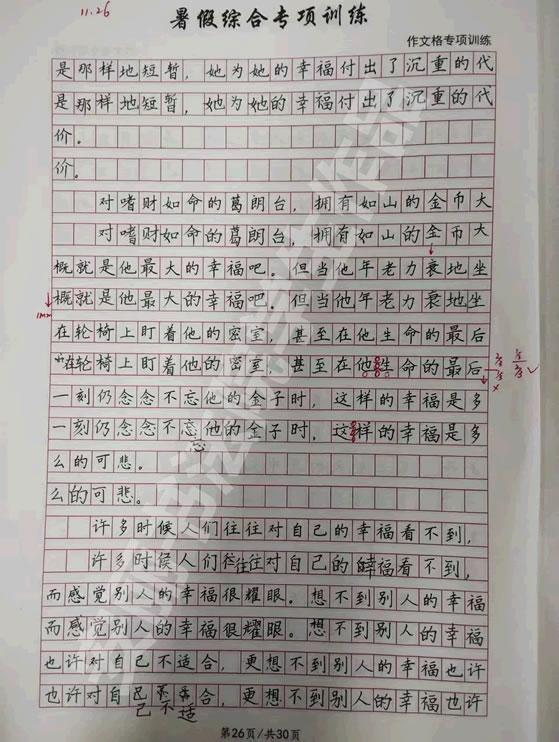 11.26
暑假综合专项训练
作文格专项训练
是那样地短暂，她为她的幸福付出了沉重的代
是那样地短暂，她为她的幸福付出了沉重的代
价。
价。
对嗜财如命的葛朗台，拥有如山的金币大
对嗜财如命的葛朗台，拥有如山的金币大
概就是他最大的幸福吧。但当他年老力衰地坐
概就是他最大的幸福吧。但当他年老力衰地坐
1mm
在轮椅上盯着他的密室，甚至在他生命的最后
在轮椅上盯着他的密室，甚至在他生命的最后
一刻仍念念不忘他的金子时，这样的幸福是多
一刻仍念念不忘他的金子时，这样的幸福是多
么的可悲。
么的可悲。
许多时候人们往往对自己的幸福看不到，
许多时候人们往往对自己的幸福看不到，
而感觉别人的幸福很耀眼。想不到别人的幸福
而感觉别人的幸福很耀眼。想不到别人的幸福
也许对自己不适合，更想不到别人的幸福也许
也许对自己不适合，更想不到别人的幸福也许
己不适
第26页/共30页